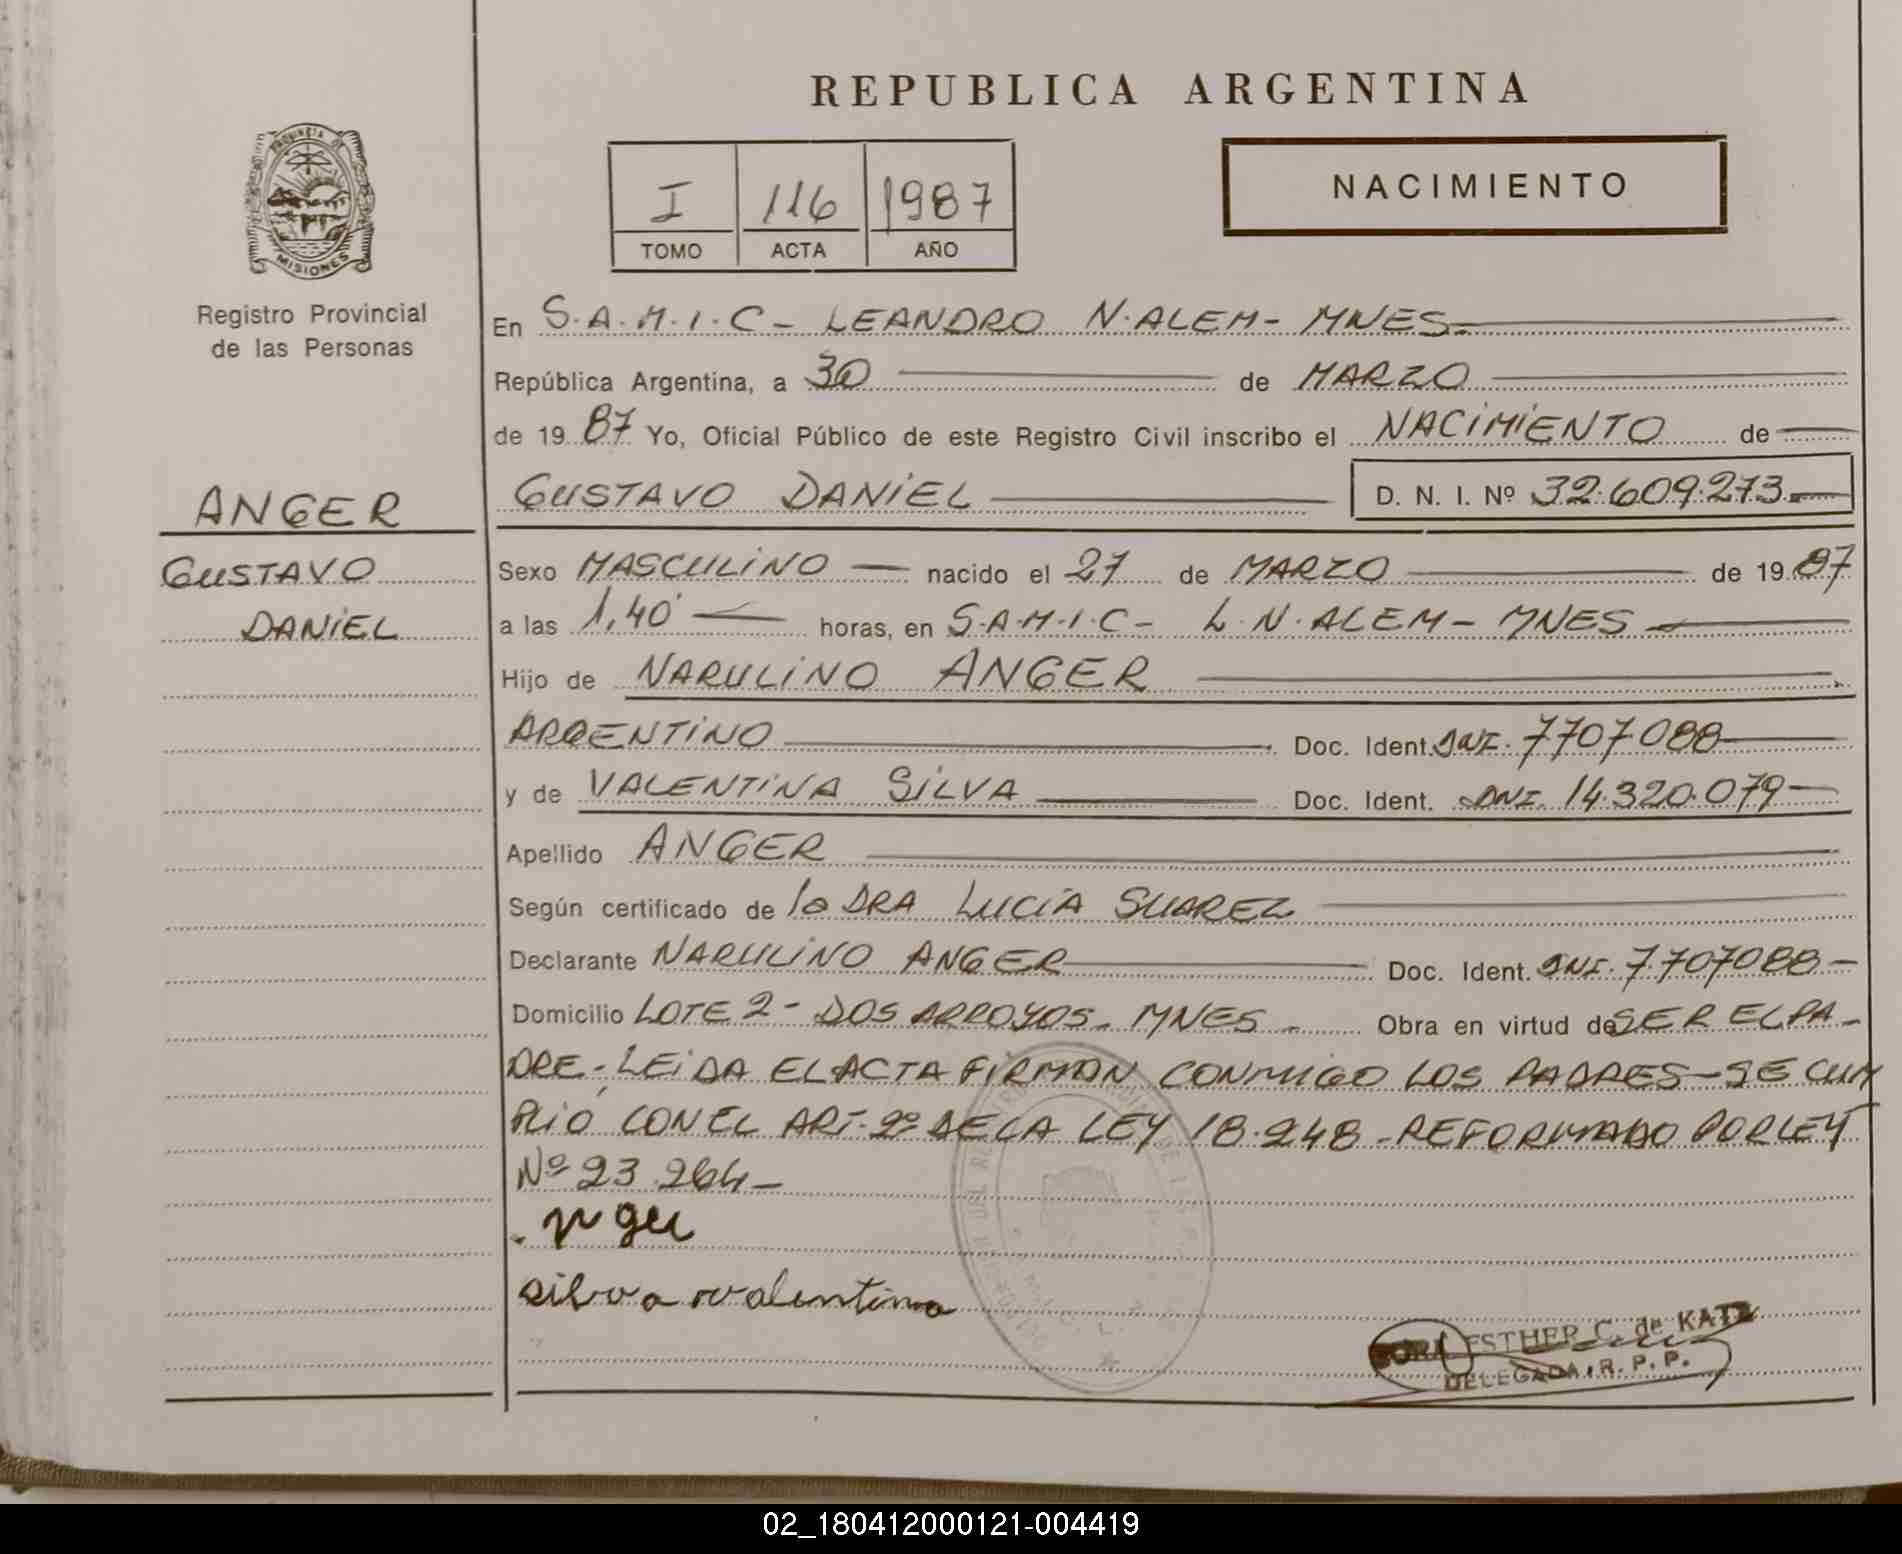 REPUBLICA ARGENTINA
PROVINCIA DE
MISIONES
Registro Provincial
de las Personas
I 116 1987
TOMO ACTA AÑO
NACIMIENTO
En S.A.M.I.C - LEANDRO N. ALEM - MNES.
República Argentina, a 30 de MARZO
de 19 87 Yo, Oficial Público de este Registro Civil inscribo el NACIMIENTO de
ANGER
GUSTAVO DANIEL D. N. I. Nº 32.609.273
GUSTAVO
DANIEL
Sexo MASCULINO nacido el 27 de MARZO de 19 87
a las 1,40 horas, en S.A.M.I.C - L.N. ALEM - MNES
Hijo de NARULINO ANGER
ARGENTINO Doc. Ident. DNI. 7707088
y de VALENTINA SILVA Doc. Ident. DNI. 14.320.079
Apellido ANGER
Según certificado de la DRA LUCIA SUAREZ
Declarante NARULINO ANGER Doc. Ident. DNI. 7.707088
Domicilio LOTE 2 - DOS ARROYOS - MNES - Obra en virtud de SER EL PA-
DRE - LEIDA EL ACTA FIRMAN CONMIGO LOS PADRES - SE CUM
PLIO CON EL ART. 2º DE LA LEY 18.248 - REFORMADO POR LEY
Nº 23.264 -
silva valentina
ESTHER C. de KATZ
DELEGADA, R. P. P.
02_180412000121-004419